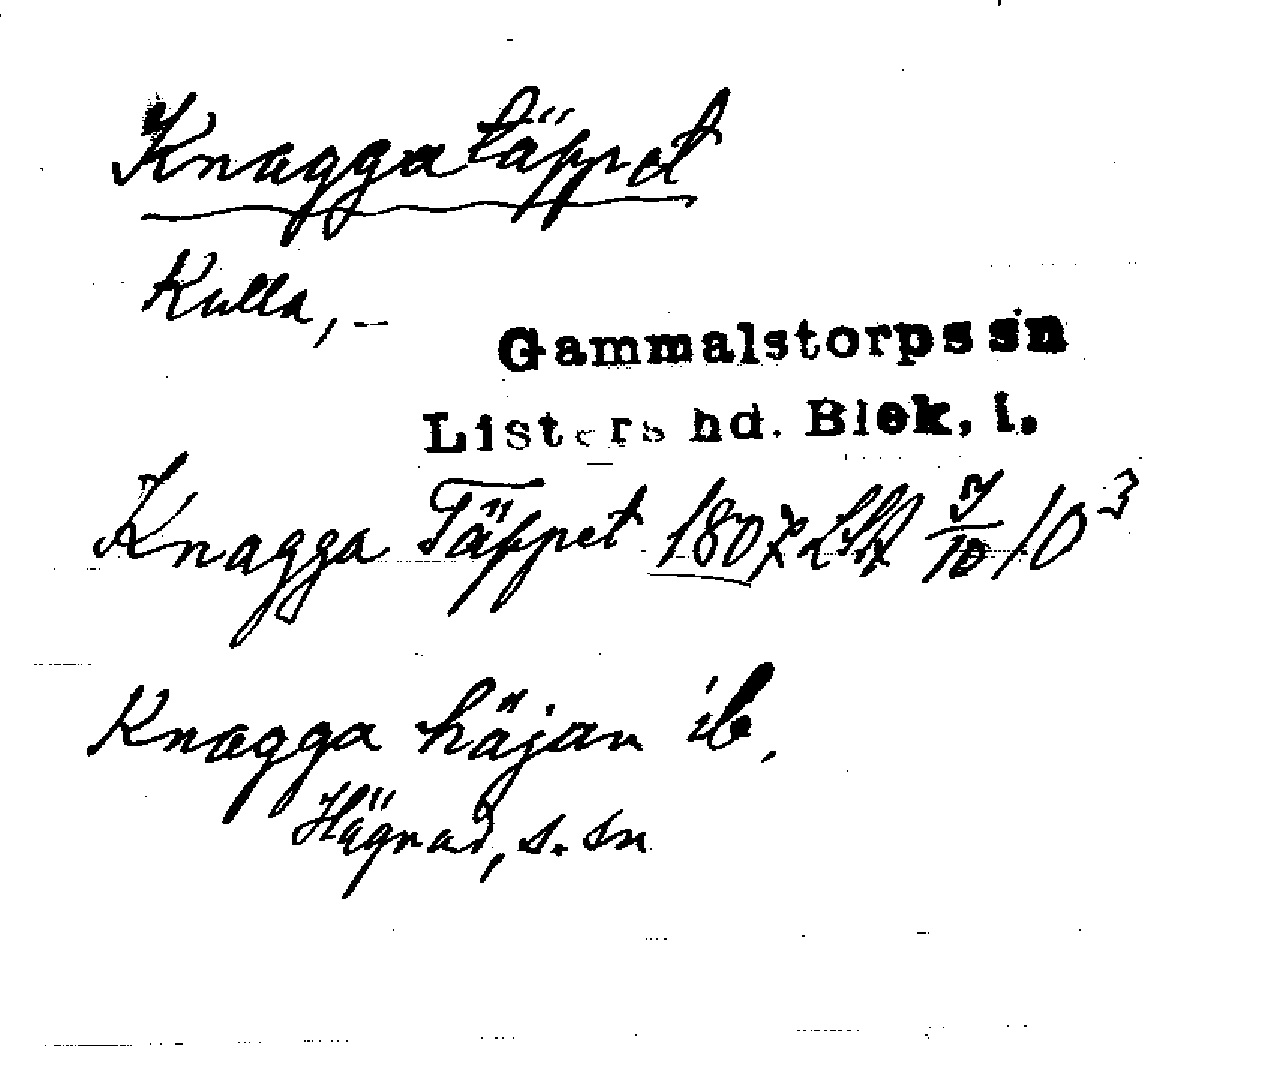 Knaggatäppet
Kulla, –
Gammalstorps sn
Listers hd. Blek. l.
Knagga Täppet 1807 7/10 10³
Knagga häjan ib.
Hägnad, s. sn